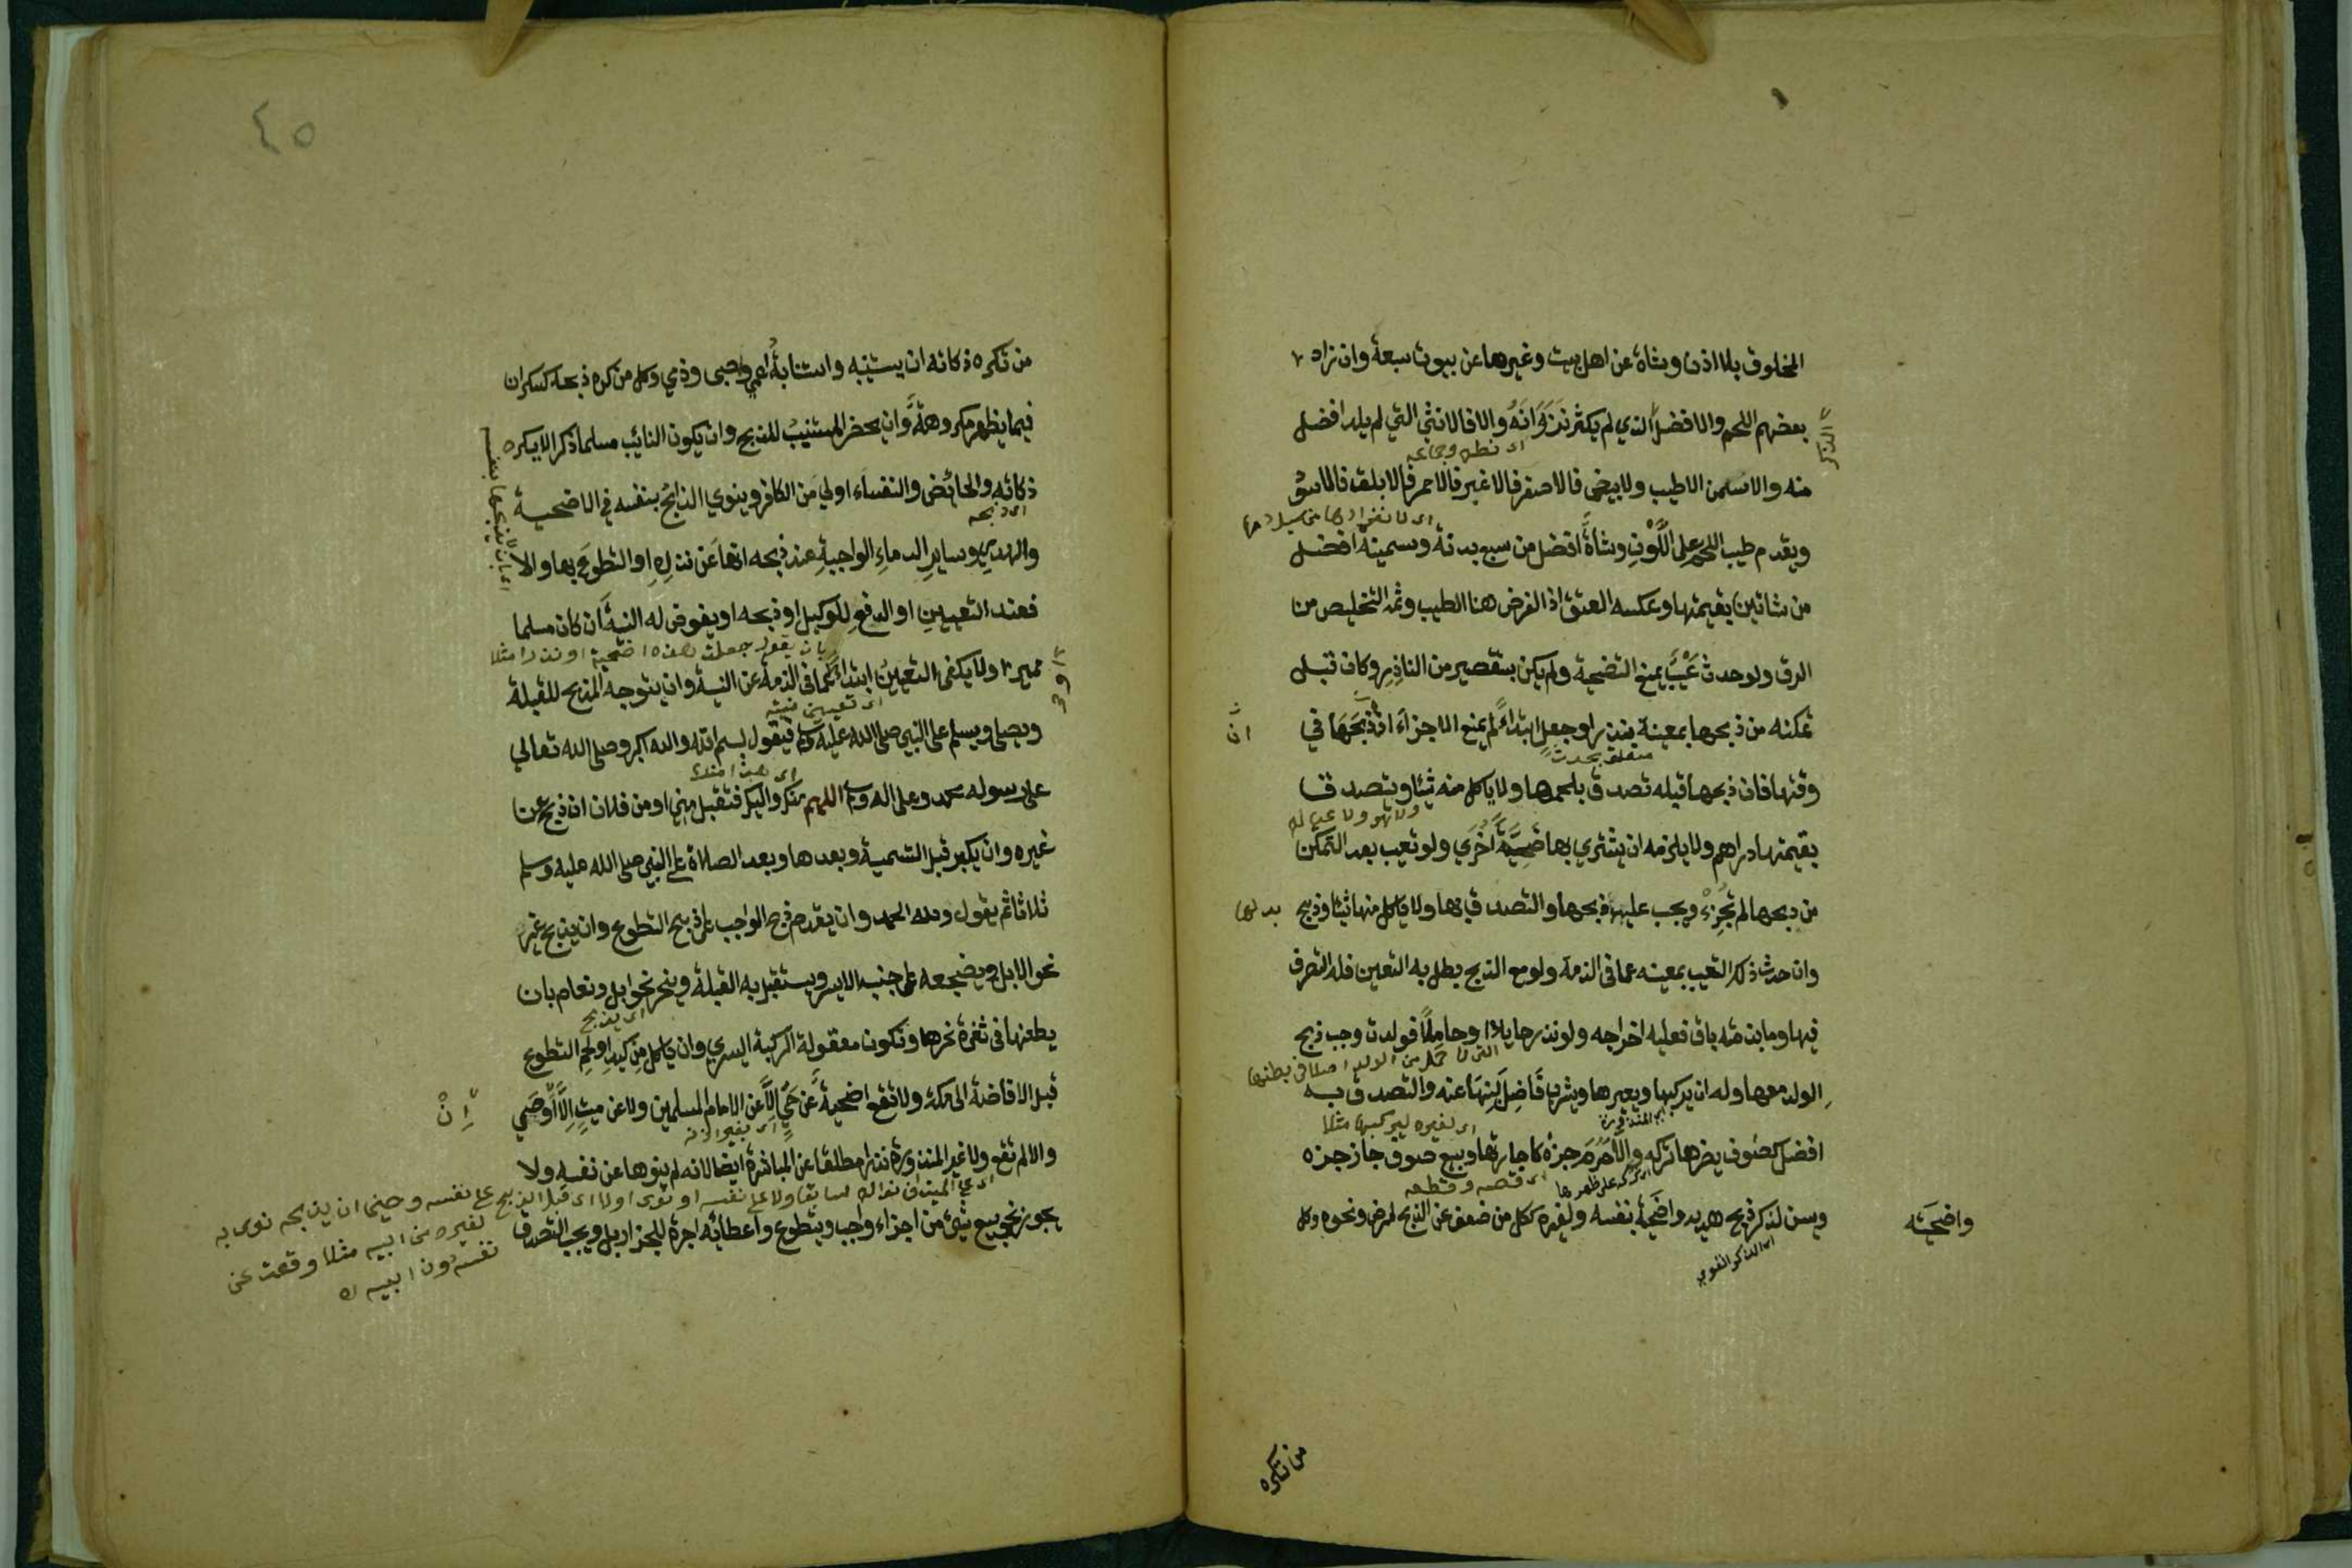 المخلوق بلا اذن وشاة عن اهل بيت وغيرها عن بيوت سبعة وان زاد
بعضهم اللحم والافضل الذي لم يكثر نَزَوَانَهُ والا فالانثى التي لم يلد افضل
الذكر
منه والاسمن الاطيب ولابيض فالاصفر فالاغبر فالاحمر فالابلق فالاسود
ويقدم طيب اللحم على اللَّوْنِ وشاةٌ افضل من سبع بدنة وسمينة افضل
من شاتين بقيمتها وعكسه العتق اذ الغرض هنا الطيب وثم التخليص من
الرق ولو حدث عَيْبٌ يمنع التضحية ولم يكن بتقصير من الناذِرِ وكان قبل
تمكنه من ذبحها بمعينة بنذر او جعل ابتداءً لم يمنع الاجزاءَ ان ذَبَحَهَا في
ان
متعلق بحدث
وقتها فان ذبحها قبله تصدق بلحمها ولا ياكل منه شيئا ويتصدق
ولا هو ولا عياله
بقيمتها دراهم ولا يلزمه ان يشتري بها ضَحِيَّةً اُخْرَي ولو تعيب بعد التمكن
من ذبحها لم تُجْزِءْ ويجب عليه ذبحها والتصدق بها ولا ياكل منها شيئا وذبح
بدلها
وان حدث ذلك التعيب بمعينه عما فى الذمة ولو مع الذبح بطل به التعين فله التصرف
فيها وما بذمته باق فعليه اخراجه ولو نذرها حايلا او حاملًا فولدت وجب ذبح
الولد معها وله ان يركبها ويعيرها ويشرب فَاضِلَ لَبَنِهَا عنه والتصدق به
اى لغيره ليركبها مثلا
افضل كصُوف يضرها تركه والاحَرُمَ جزه كاجارتها وبيع صوف جاز جزه
اى قصه وقطعه
ويسن لذكر ذبح هديه واضحية نفسه ولغيره ككل من ضعف عن الذبح لمرض ونحوه وكل
واضحيته
اى الذكر القوي
من تكره
٤٥
من تكره ذكاته ان يستنيبه واستنابةُ اعمى وصبى وذمي وكل من كره ذبحه كسكران
فيما يظهر مكروهةٌ وان يحضر المستنيبُ للذبح وان يكون النائب مسلما ذكرا لا يكره
ذكاته والحائض والنفساء اولي من الكافر وينوي الذابحُ بنفسه في الاضحية
اى ذبحه
والهدي وسايرِ الدماءِ الواجبةِ عند ذبحه انها عَن نذرِهِ او التطوعَ بها والا
فعند التعيينِ او الدفعِ للوكيل او ذبحه او يفوض له النيةَ ان كان مسلما
بان يقول جعلت هذه اضحية او نذرا مثلا
مميزا ولا يكفى التعيينُ ابتداءً عما فى الذمة عن النية وان يتوجه الذبح للقبلة
ويصلى ويسلم على النبي صلى الله عليه وسلم فيقول بسم الله والله اكبر وصلى الله تعالي
على رسوله محمد وعلى اله وسلم اللهم منك واليك فتقبل مِنِي او من فلان ان ذبح عن
غيره وان يكبر قبل التسمية وبعدها وبعد الصلاة على النبي صلى الله عليه وسلم
ثلاثا ثم يقول ولله الحمد وان يقدم ذبح الواجب على ذبيح التطوع وان يذبح غير
نحو الابل ويضجعه على جنبه الايسر ويستقبل به القبلة وينحر نحو ابل ونعام بان
اى يذبح
يطعنها فى ثغرة نحرها وتكون معقولة الركبة اليسري وان ياكل مِن كبدِ او لحم التطوع
قبل الافاضة الى مكة ولا تقع اضحيةٌ عن حَيٍّ اِلَّا عن الامام المسلمين ولا عن ميتٍ اِلَّا اَوْصَي
اِنْ
اى بغير اذنه
والا لم تقع ولا غير المنذورة نذرا مطلقا عن المباشرة ايضا لانه لم ينوها عن نفسه ولا
يجوز نحو بيع شئ من اجزاء واجب وتطوع واعطائه اجرة للجزار بل ويجب التصدق
لغيره من ابيه مثلا وقعت عن
نفسه دون ابيه